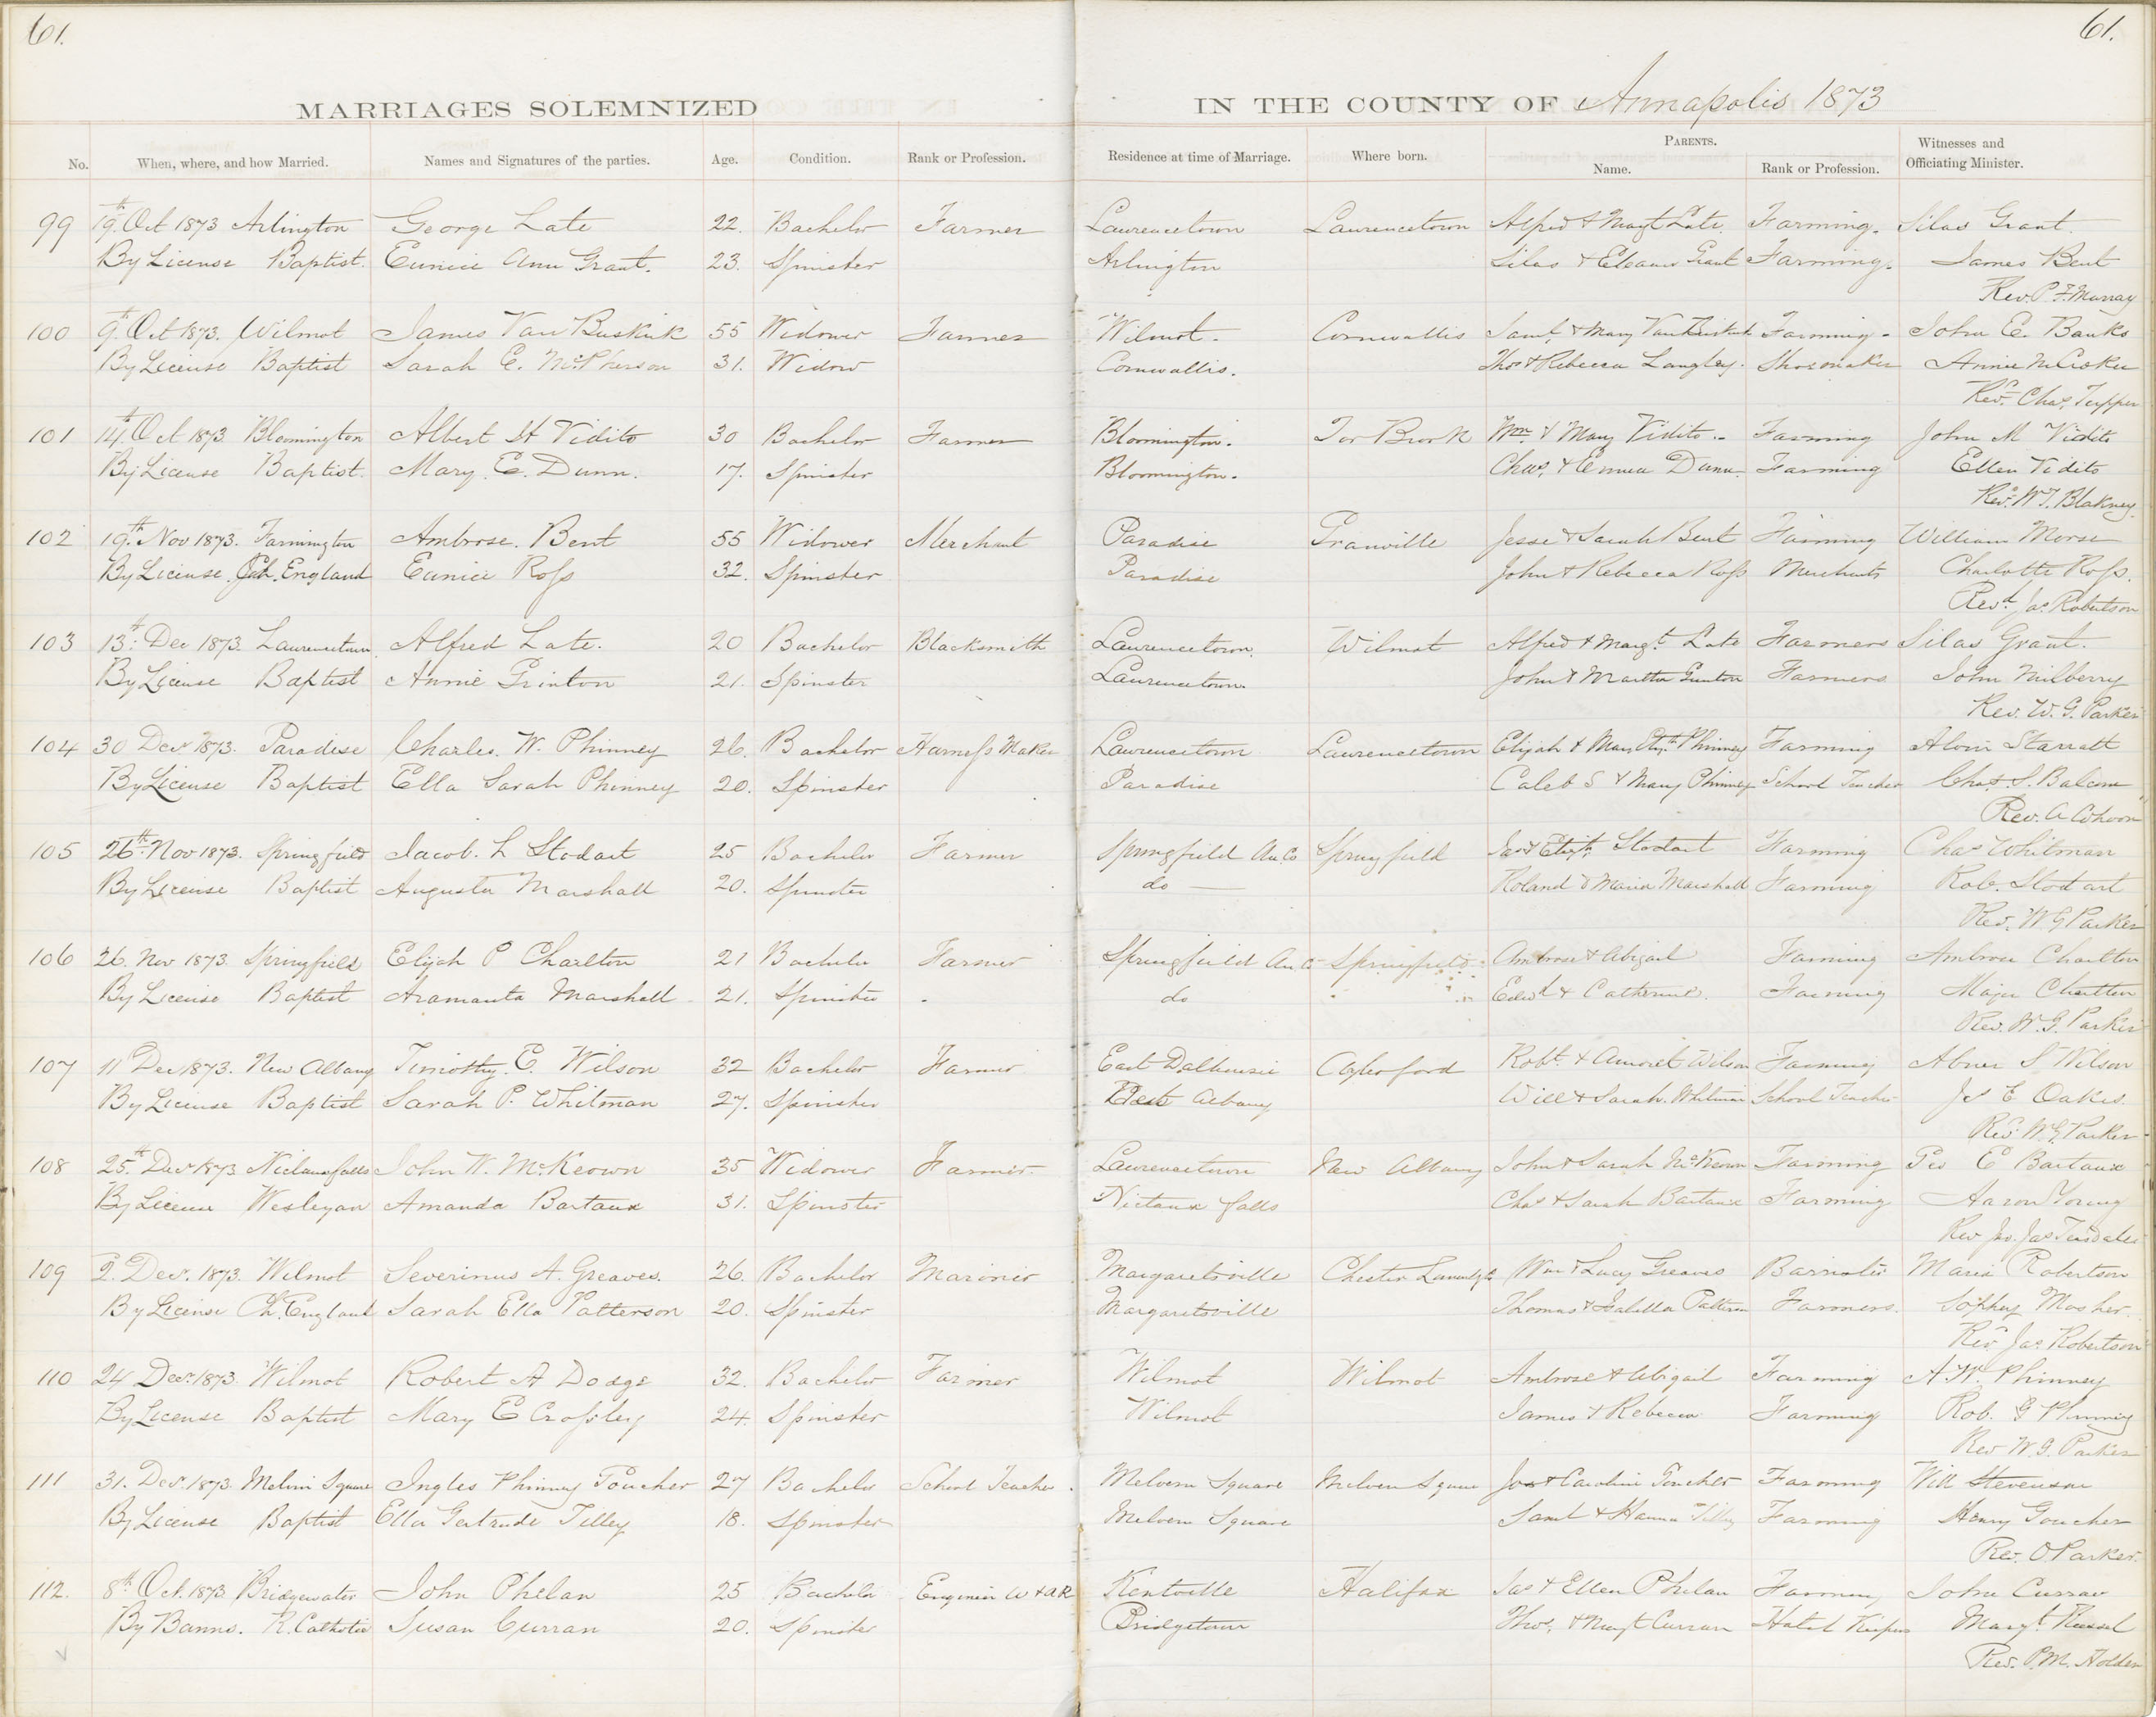 61. 61.
MARRIAGES SOLEMNIZED IN THE COUNTY OF Annapolis 1873
No. When, where, and how Married. Names and Signatures of the parties. Age. Condition. Rank or Profession. Residence at time of Marriage. Where born. PARENTS. Name. Rank or Profession. Witnesses and Officiating Minister.
99 19th Oct 1873 Arlington George Late 22. Bachelor Farmer Lawrencetown Lawrencetown Alfred & Margt Late. Farming. Silas Grant.
By License Baptist. Eunice Ann Grant. 23. Spinster Arlington Silas & Eleanor Grant Farming. James Bent
Rev. P. F. Murray
100 9th Oct 1873. Wilmot James Van Buskirk 55 Widower Farmer Wilmot. Cornwallis Saml. & Mary Van Buskirk Farming. John E. Banks
By License Baptist Sarah E. McPherson 31. Widow Cornwallis. Thos & Rebecca Langley. Shoemaker Annie
Revd. Chas. Tupper
101 14th Oct 1873 Bloomington Albert St Vidito 30 Bachelor Farmer Bloomington. Tor Brook Wm & Mary Vidito. Farming John M Vidito
By License Baptist. Mary. E. Dunn. 17. Spinster Bloomington. Chas. & Emma Dunn. Farming Ellen Vidito
Revd. W. J. Blakney
102 19th Nov 1873. Farmington Ambrose. Bent 55 Widower Merchant Paradise Granville Jesse & Sarah Bent Farming William Morse
By License. Ch. England Eunice Ross 32. Spinster Paradise John & Rebecca Ross Merchants Charlotte Ross.
Revd. Jas. Robertson
103 13th Dec 1873. Lawrencetown. Alfred Late. 20 Bachelor Blacksmith Lawrencetown. Wilmot Alfred & Margt. Late Farmers Silas Grant.
By License Baptist Annie Grinton 21. Spinster Lawrencetown. John & Martha Grinton Farmers John Milberry
Rev. W. G. Parker
104 30 Decr 1873. Paradise Charles. W. Phinney 26. Bachelor Harness Maker Lawrencetown Lawrencetown Elijah & Mary Elizth Phinney Farming Alvin Starratt
By License Baptist Ella Sarah Phinney 20. Spinster Paradise Caleb S & Mary Phinney School Teacher Chas. S. Balcom
Rev. A Cohoon
105 26th Nov 1873. Springfield Jacob. L Stodart 25 Bachelor Farmer Springfield An. Co Springfield Jas & Elizth. Stodart Farming Chas Whitman
By License Baptist Augusta Marshall 20. Spinster do Roland & Maria Marshall Farming Rob. Stodart
Rev. W. G Parker
106 26. Nov 1873. Springfield Elijah P Charlton 21 Bachelor Farmer Springfield An. Co Springfield Ambrose & Abigail Farming Ambrose Charlton
By License Baptist Aramanta Marshall 21. Spinster do Edwd & Catherine. Farming Major Charlton
Rev. W. G. Parker
107 11 Dec 1873. New Albany Timothy. E. Wilson 32 Bachelor Farmer East Dalhousie Aylesford Robt. & Amoret Wilson Farming Abner S Wilson
By License Baptist Sarah P. Whitman 27. Spinster Albany Will & Sarah. Whitman School Teacher Js E Oakes.
Rev. W. G. Parker
108 25th Decr 1873 Nictaux falls John W. McKeown 35 Widower Farmer. Lawrencetown New Albany John & Sarah McKeown Farming Geo E Bartaux
By License Wesleyan Amanda Bartaux 31. Spinster Nictaux falls Chas & Sarah Bartaux Farming Aaron Young
Rev Jno. Jas Teasdale
109 2. Decr. 1873. Wilmot Severinus A. Greaves. 26. Bachelor Mariner Margaretsville Chester Wm & Lucy Greaves Barrister Maria Robertson
By License Ch. England Sarah Ella Patterson 20. Spinster Margaretsville Thomas & Isabella Patterson Farmers. Sophy Mosher
Revd Jas Robertson
110 24 Decr. 1873. Wilmot Robert A Dodge 32. Bachelor Farmer Wilmot Wilmot Ambrose & Abigail Farming A. W. Phinney
By License Baptist Mary E Crossley 24. Spinster Wilmot James & Rebecca Farming Rob. G Phinney
Rev W. G. Parker
111 31. Decr. 1873. Melvern Square Ingles Phinney Goucher 27 Bachelor School Teacher. Melvern Square Melvern Square Jos & Caroline Goucher Farming Will Stevenson
By License Baptist Ella Gertrude Tilley 18. Spinster Melvern Square Saml & Hanna Tilley Farming Henry Goucher
Rev. O. Parker.
112. 8th Oct. 1873. Bridgewater John Phelan 25 Bachelor Engineer W & AR Kentville Halifax Jas & Ellen Phelan Farming John Curran
By Banns. R. Catholic Susan Curran 20. Spinster Bridgetown Thos. & Margt Curran Hotel Keepers Margt. Russel
Rev. P. M. Holden